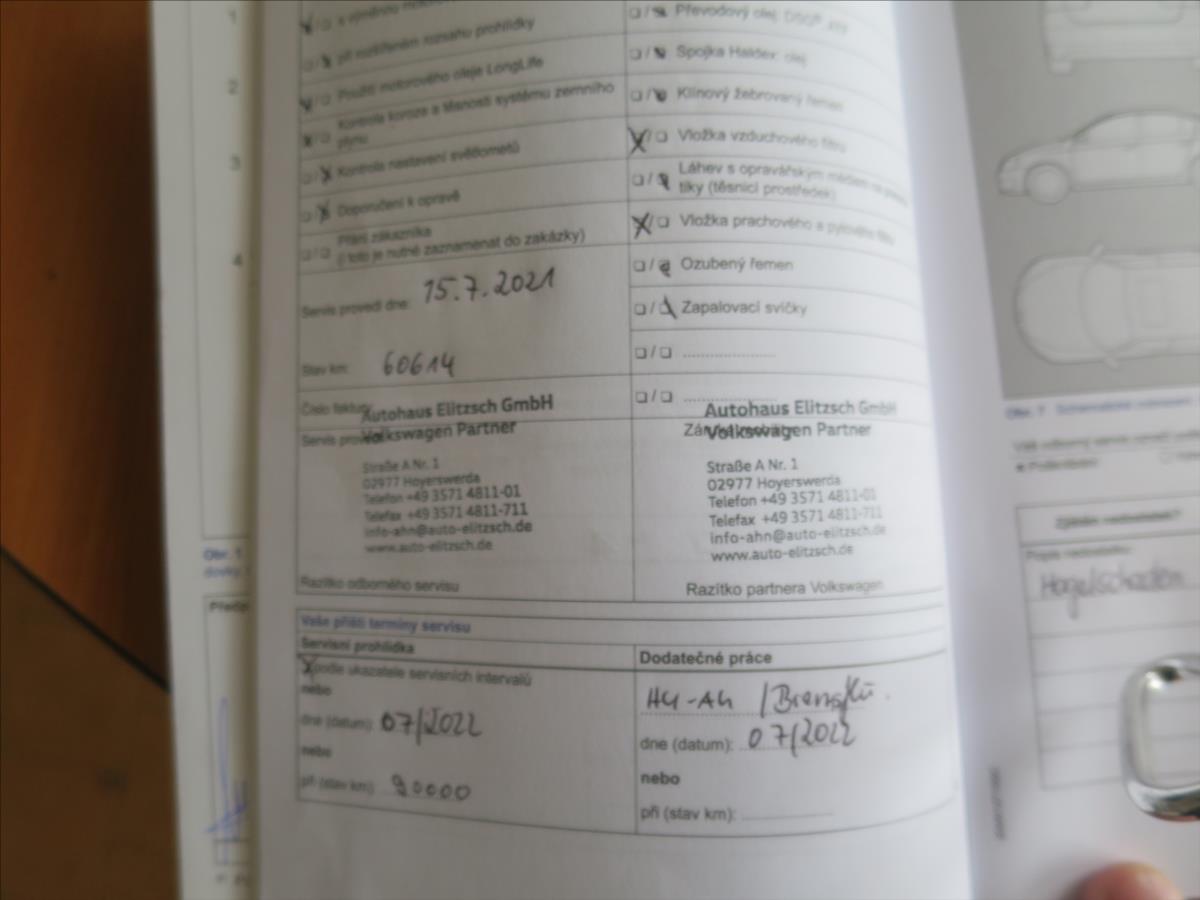 1
2
3
4
při rozšířeném rozsahu prohlídky
Použití motorového oleje LongLife
Kontrola koroze a těsnosti systému zemního
plynu
Kontrola nastavení světlometů
Doporučení k opravě
Přání zákazníka
(i toto je nutné zaznamenat do zakázky)
Servis provedl dne: 15.7.2021
Stav km: 60614
Číslo faktury:
Autohaus Elitzsch GmbH
Volkswagen Partner
Straße A Nr. 1
02977 Hoyerswerda
Telefon +49 3571 4811-01
Telefax +49 3571 4811-711
info-ahn@auto-elitzsch.de
www.auto-elitzsch.de
Razítko odborného servisu
Převodový olej: DSG®
Spojka Haldex: olej
Klínový žebrovaný řemen
Vložka vzduchového filtru
Láhev s opravářským
tiky (těsnicí prostředek)
Vložka prachového a pylového filtru
Ozubený řemen
Zapalovací svíčky
Autohaus Elitzsch GmbH
Volkswagen Partner
Straße A Nr. 1
02977 Hoyerswerda
Telefon +49 3571 4811-01
Telefax +49 3571 4811-711
info-ahn@auto-elitzsch.de
www.auto-elitzsch.de
Razítko partnera Volkswagen
Vaše příští termíny servisu
Servisní prohlídka
podle ukazatele servisních intervalů
nebo
dne (datum): 07/2022
nebo
při (stav km): 90000
Dodatečné práce
HU-AU
dne (datum): 07/2022
nebo
při (stav km):
Popis nedostatku:
Hagelschaden